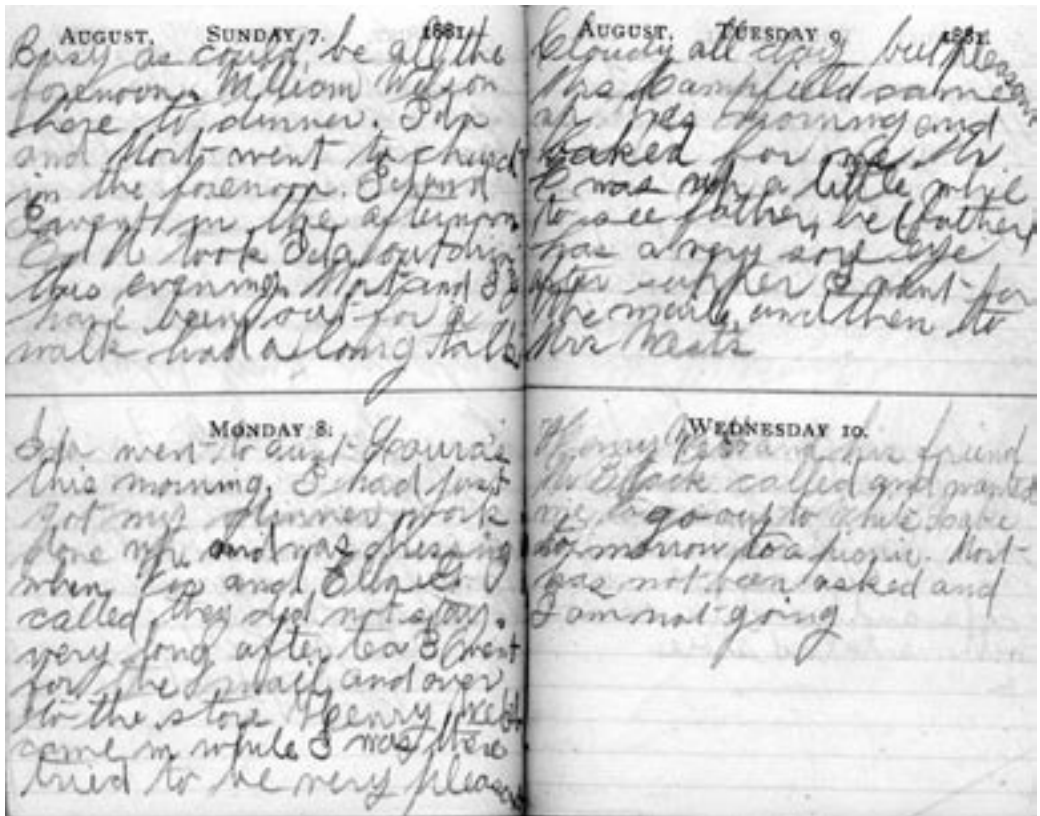 AUGUST, SUNDAY 7. 1881.
Busy as could be all the
forenoon. William Wilson
here to dinner. Ida
and Mort went to church
in the forenoon. Ida and
I went in the afternoon
Ed H took Ida out driv
this evening. Mort and I
have been out for a
walk had a long talk
MONDAY 8.
Ida went to aunt Laura's
this morning. I had just
got my dinner work
done up and was dressing
when and Ella
called, they did not stay.
very long after tea I went
for the mail and over
to the store Henry West
came in while I was there
tried to be very pleasant
AUGUST, TUESDAY 9. 1881.
Cloudy all day but pleasant
Mrs Campfield came
up this morning and
baked for me. Mr
C was up a little while
to see father, he (father)
has a very sore eye
after supper I went for
the mail, and then to
Mrs Wests
WEDNESDAY 10.
Henry West and his friend
Mr Black called and wanted
me to go out to White Lake
to morrow to a picnic. Mort
has not been asked and
I am not going